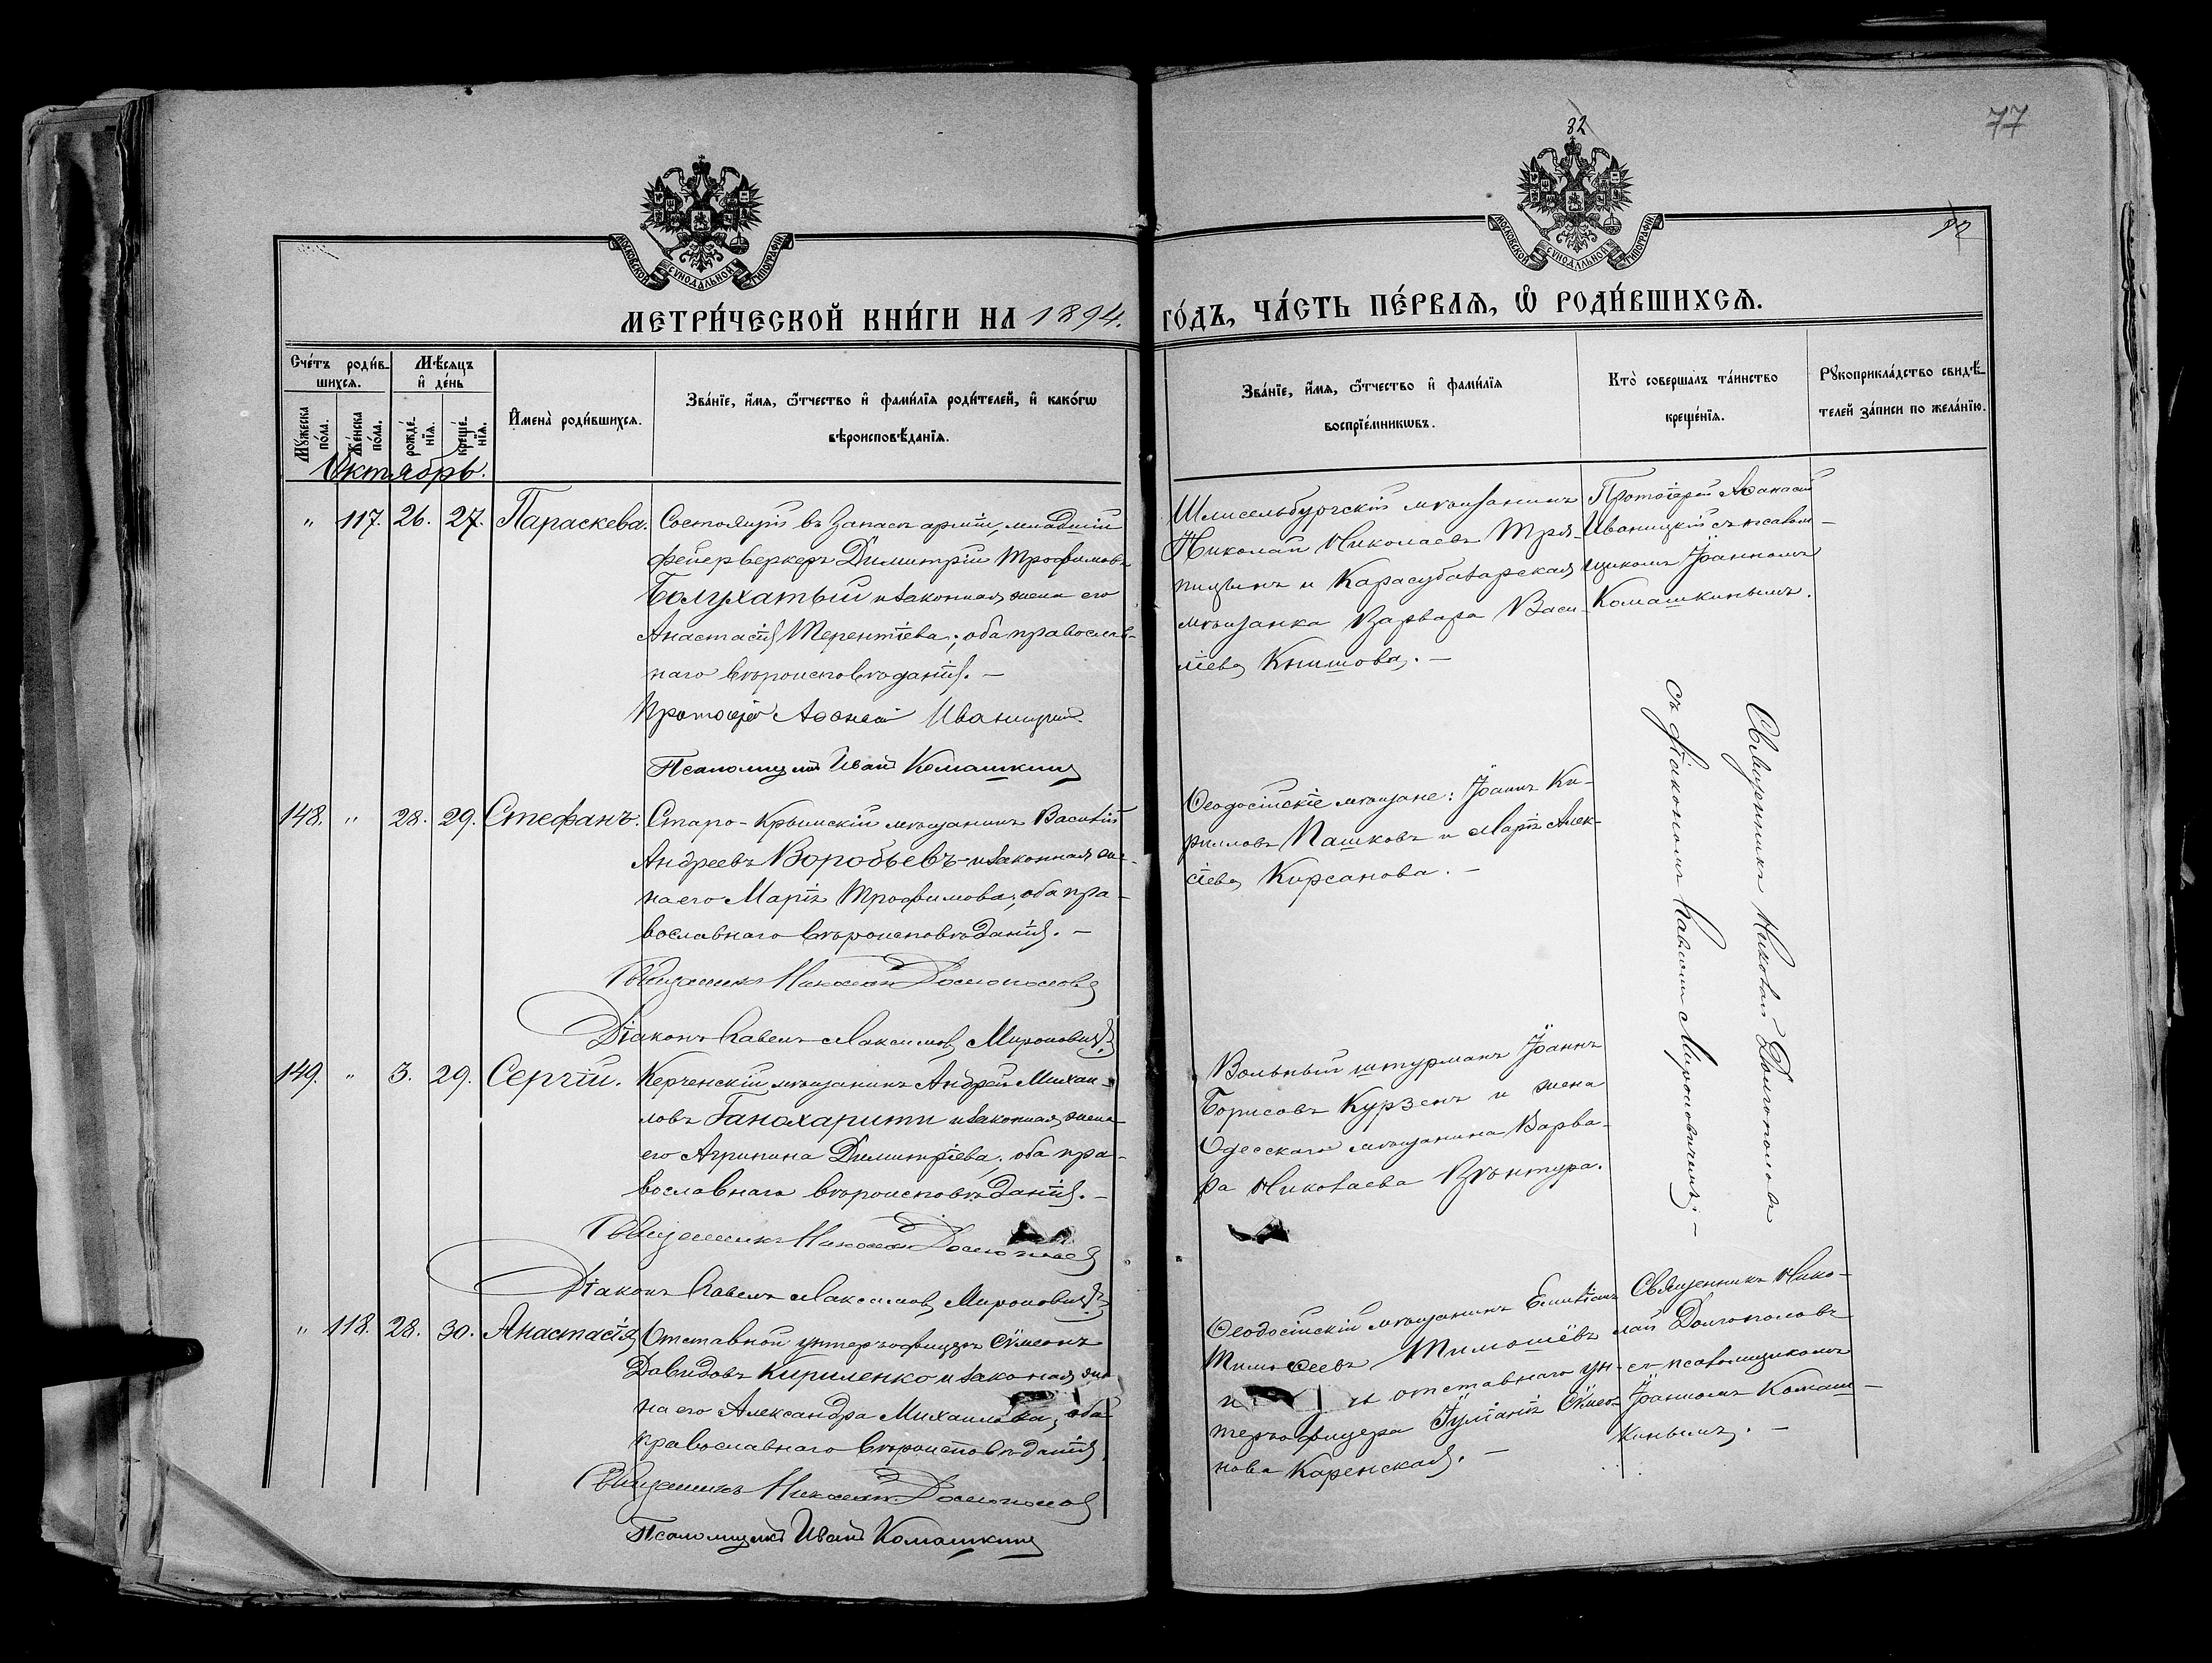 77
82
82
МОСКОВСКОЙ СѴНОДАЛЬНОЙ ТИПОГРАФІИ
МОСКОВСКОЙ СѴНОДАЛЬНОЙ ТИПОГРАФІИ
МЕТРИ́ЧЕСКОЙ КНИ́ГИ НА 1894. ГО́ДЪ, ЧА́СТЬ ПЕ́РВАЯ, Ѡ҆ РОДИ́ВШИХСЯ.
Сче́тъ роди́вшихся.
Мꙋ́жеска по́ла.
Же́нска по́ла.
Мѣ́сяцъ и҆ де́нь
рожде́нїя.
креще́нїя.
И҆мена̀ роди́вшихся.
Зва́нїе, и҆́мя, ѻ҆́тчество и҆ фами́лїя роди́телей, и҆ како́гѡ
вѣроисповѣ́данїя.
Зва́нїе, и҆́мя, ѻ҆́тчество и҆ фами́лїя
воспрїе́мникѡвъ.
Кто̀ соверша́лъ та́инство
креще́нїя.
Рꙋкоприкла́дство свидѣ́-
телей за́писи по жела́нїю.
Октябрь.
" 117. 26. 27. Параскева.
Состоящій въ запасѣ арміи, младшій
фейерверкеръ Димитрій Трофимовъ
Болухатый и законная жена его
Анастасія Терентіева; оба православ-
наго вѣроисповѣданія. –
Протоіерей Аѳанасій Иваницкій.
Псаломщикъ Иванъ Комашкинъ
Шлисельбургскій мѣщанинъ
Николай Николаевъ Тря-
пицынъ и Карасубазарская
мѣщанка Варвара Васи-
ліева Книшова. –
Протоіерей Аѳанасій
Иваницкій съ псалом-
щикомъ Іоанномъ
Комашкинымъ.
148. " 28. 29. Стефанъ.
Старо-Крымскій мѣщанинъ Василій
Андреевъ Воробьевъ и законная же-
на его Марія Трофимова; оба пра-
вославнаго вѣроисповѣданія. –
Священникъ Николай Долгополовъ
Діаконъ Павелъ Максимовъ Мироновичъ
Ѳеодосійскіе мѣщане: Іоаннъ Ки-
рилловъ Пашковъ и Марія Алек-
сіева Кирсанова. –
Священникъ Николай Долгополовъ
съ діакономъ Павломъ Мироновичемъ. –
149. " 3. 29. Сергій.
Керченскій мѣщанинъ Андрей Михаи-
ловъ Ганахарити и законная жена
его Агрипина Димитріева; оба пра-
вославнаго вѣроисповѣданія. –
Священникъ Николай Долгополовъ
Діаконъ Павелъ Максимовъ Мироновичъ
Вольный штурманъ Іоаннъ
Борисовъ Курзенъ и жена
Одесскаго мѣщанина Варва-
ра Николаева Вѣнтура.
" 118. 28. 30. Анастасія
Отставной унтеръ-офицеръ Сѵмеонъ
Давидовъ Кириленко и законная же-
на его Александра Михаилова; оба
православнаго вѣроисповѣданія
Священникъ Николай Долгополовъ
Псаломщикъ Иванъ Комашкинъ
Ѳеодосійскій мѣщанинъ Емиліанъ
Тимоѳеевъ Тимошёвъ
и отставнаго ун-
теръ-офицера Іуліанія Сѵмео-
нова Каренская. –
Священникъ Нико-
лай Долгополовъ
съ псаломщикомъ
Іоанномъ Комаш-
кинымъ. –